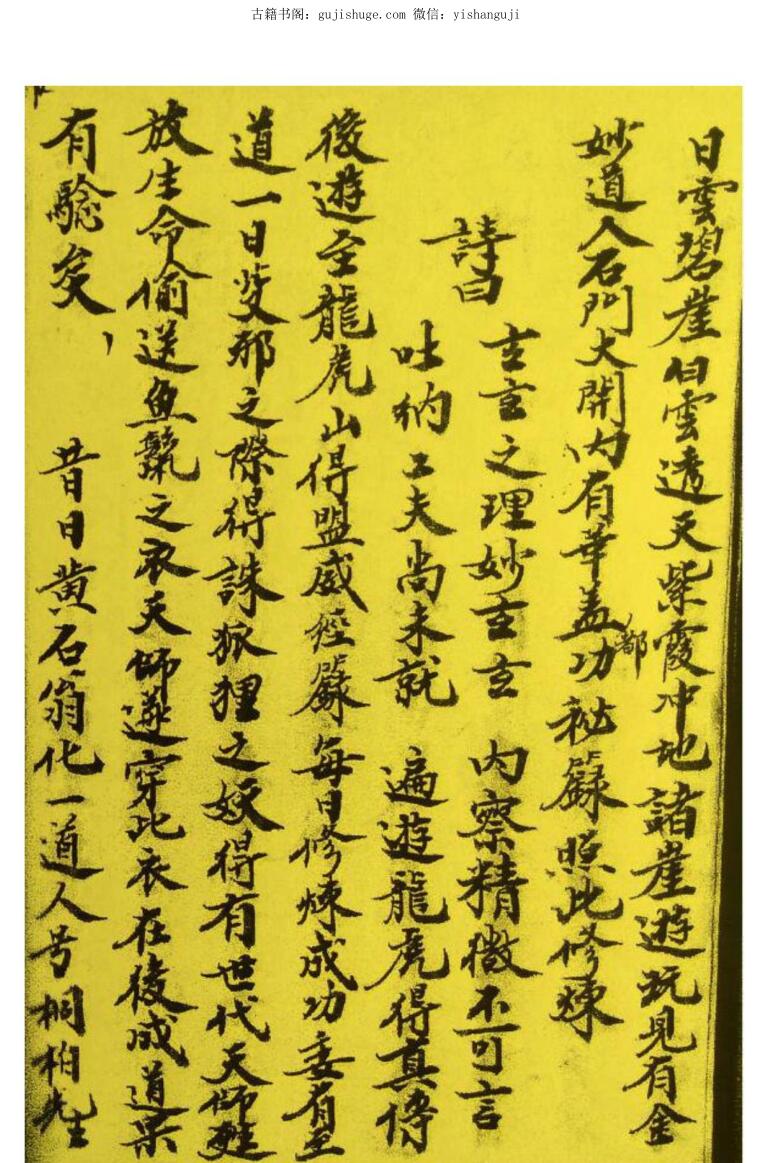 古籍书阁：gujishuge.com 微信：yishanguji
日雲碧崖白雲透天紫霞冲地諸崖遊玩見有金
妙道人石門大開内有華盖功都秘籙照此修煉
詩曰
玄玄之理妙玄玄 内察精微不可言
吐納工夫尚未就 遍遊龍虎得真傳
後遊至龍虎山得盟威經籙每日修煉成功委有至
道一日收邪之際得誅狐狸之妖得有世代天師
放生命偷送魚鱉之衣天師遂穿此衣在後成道果
有驗矣，昔日黄石翁化一道人号桐柏先生